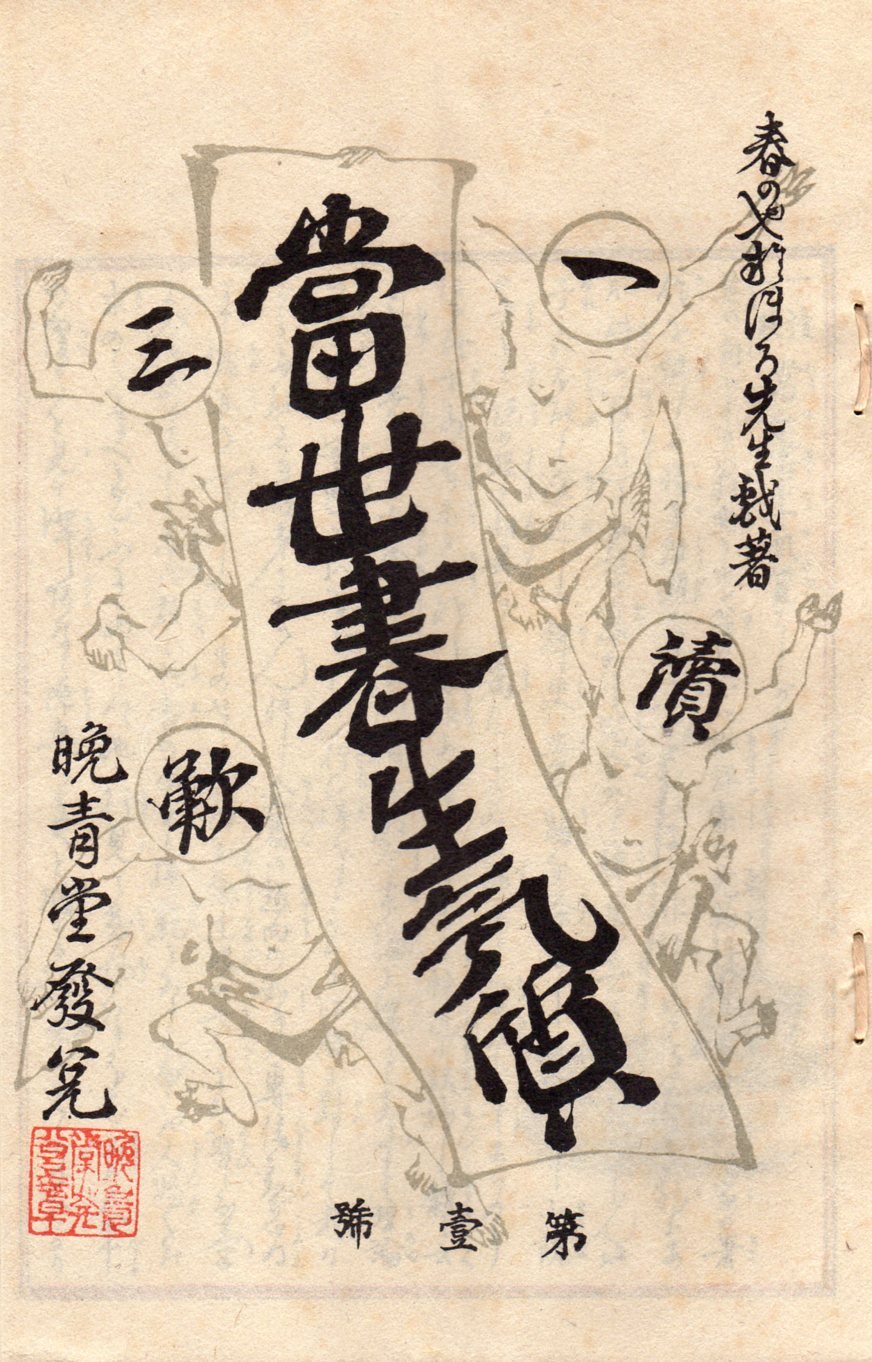 春のやおほろ先生戯著
一
讀
三
歎
當世書生氣質
晩青堂發兌
第壹號